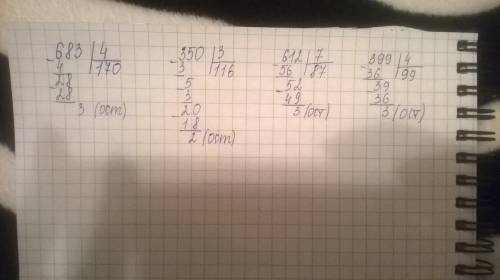 683 | 4
4 | 170
28
28
3 (ост)
350 | 3
3 | 116
5
3
20
18
2 (ост)
612 | 7
56 | 87
52
49
3 (ост)
399 | 4
36 | 99
39
36
3 (ост)